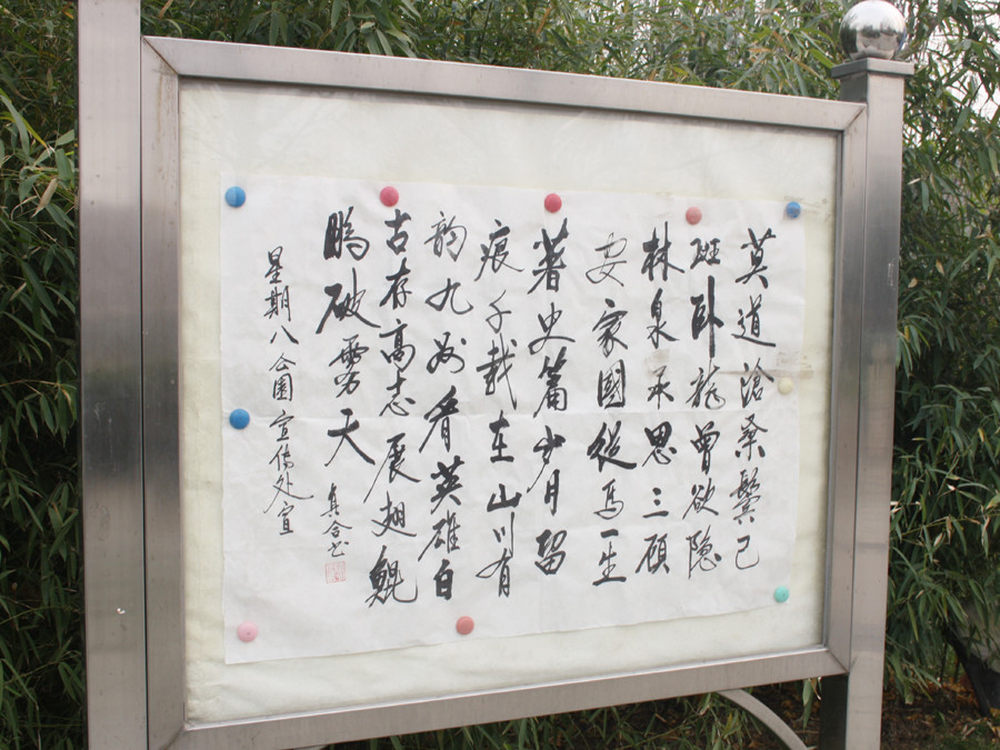 莫道滄桑鬓已
斑卧龍曾欲隐
林泉承思三顾
安家國從馬一生
著史篇岁月留
痕千载在山川有
韵九州看英雄自
古存高志展翅鲲
鹏破雲天
真合书
星期八公園宣传处宣